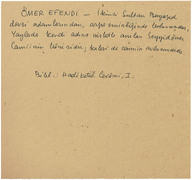 ÖMER EFENDİ — İkinci Sultan Bayezid
devri adamlarından, arpa eminliğinde bulunmuş,
Yaylada kendi adına nisbetle anılan
Camiinin bânisidir; kabri de camiin
Bibl.: Hadikatül Cevâmi, I.